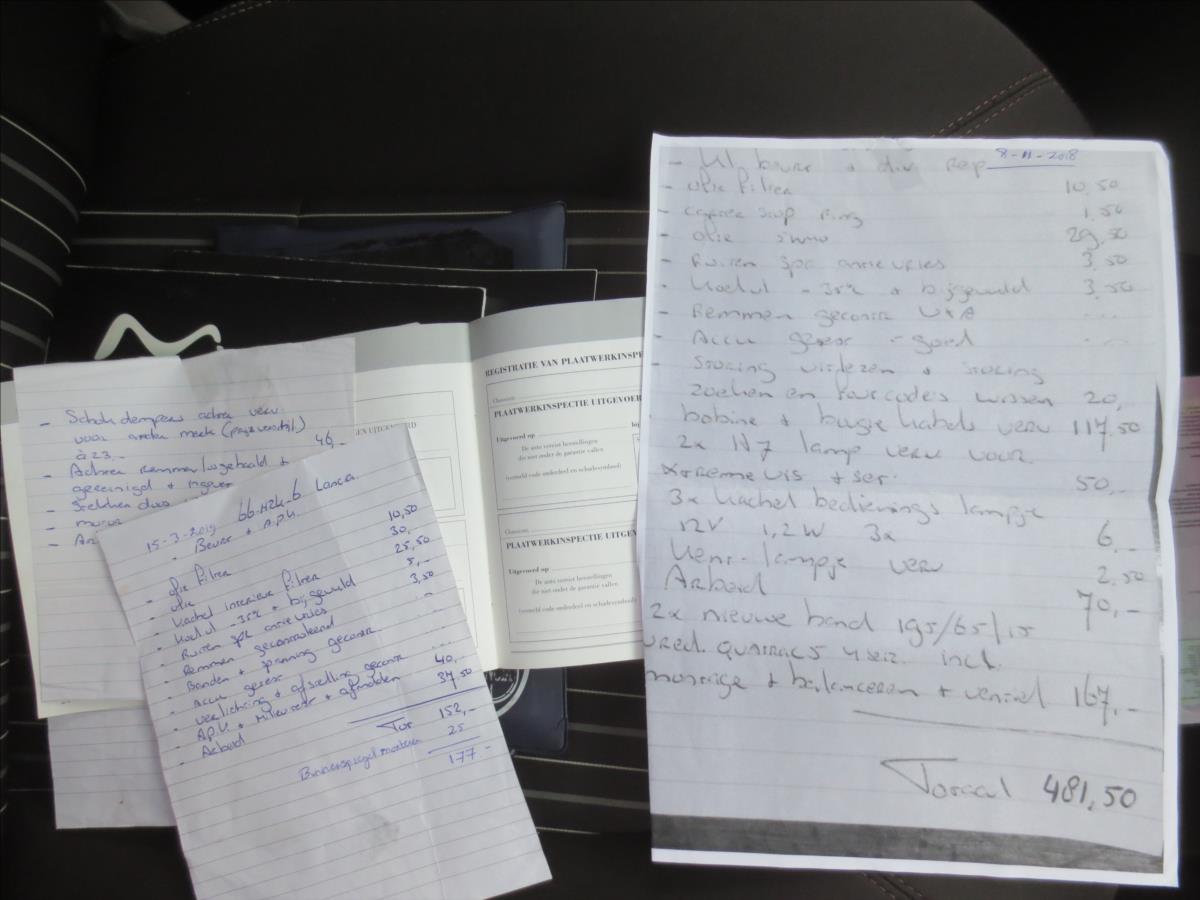 - Schokdempers achter verv.
voor ander merk (prijsverschil)
à 23,- 46,-
- Achter remmen losgehaald +
gereinigd + ingevet
- Stekker doos
-
- Ar
15-3-2019 66-HZK-6 Lancia
- Beurt + A.P.K.
- olie filter 10,50
- olie 30,-
- Kachel interieur filter 25,50
- Koelvl -35°C + bijgevuld 5,-
- Ruiten spr antivries 3,50
- Remmen gecontroleerd ...
- Banden + spanning gecontr
- Accu getest ...
- verlichting + afstelling gecontr ...
- A.P.K. + Milieutest + afmelden 40,-
- Arbeid 37,50
Tot 152,-
Binnenspiegel monteren 25
177 -
REGISTRATIE VAN PLAATWERKINSPE
Uitgevoerd op
PLAATWERKINSPECTIE UITGEVOER
De auto vereist herstellingen
die niet onder de garantie vallen.
(vermeld code onderdeel en schadesymbool)
PLAATWERKINSPECTIE UITGEV
Uitgevoerd op
De auto vereist herstellingen
die niet onder de garantie vallen.
(vermeld code onderdeel en schadesymbool)
- Kl. beurt + div rep 8-11-2018
- olie filter 10,50
- carter stop ring 1,50
- olie 5W40 29,50
- Ruiten spr antivries 3,50
- Koelvl -35°C + bijgevuld 3,50
- Remmen gecontr V+A ...
- Accu getest - goed ...
- Storing uitlezen + storing
zoeken en foutcodes wissen 20,-
bobine + bougie kabels verv 117,50
2x H7 lamp verv voor.
Xtreme vis + ser. 50,-
3x Kachel bedienings lampje
12V 1,2W 3x 6,-
Kent. lampje verv 2,50
Arbeid 70,-
2x nieuwe band 195/65/15
vred. QUATRAC 5 4 seiz. incl.
montage + balanceren + ventiel 167,-
Totaal 481,50